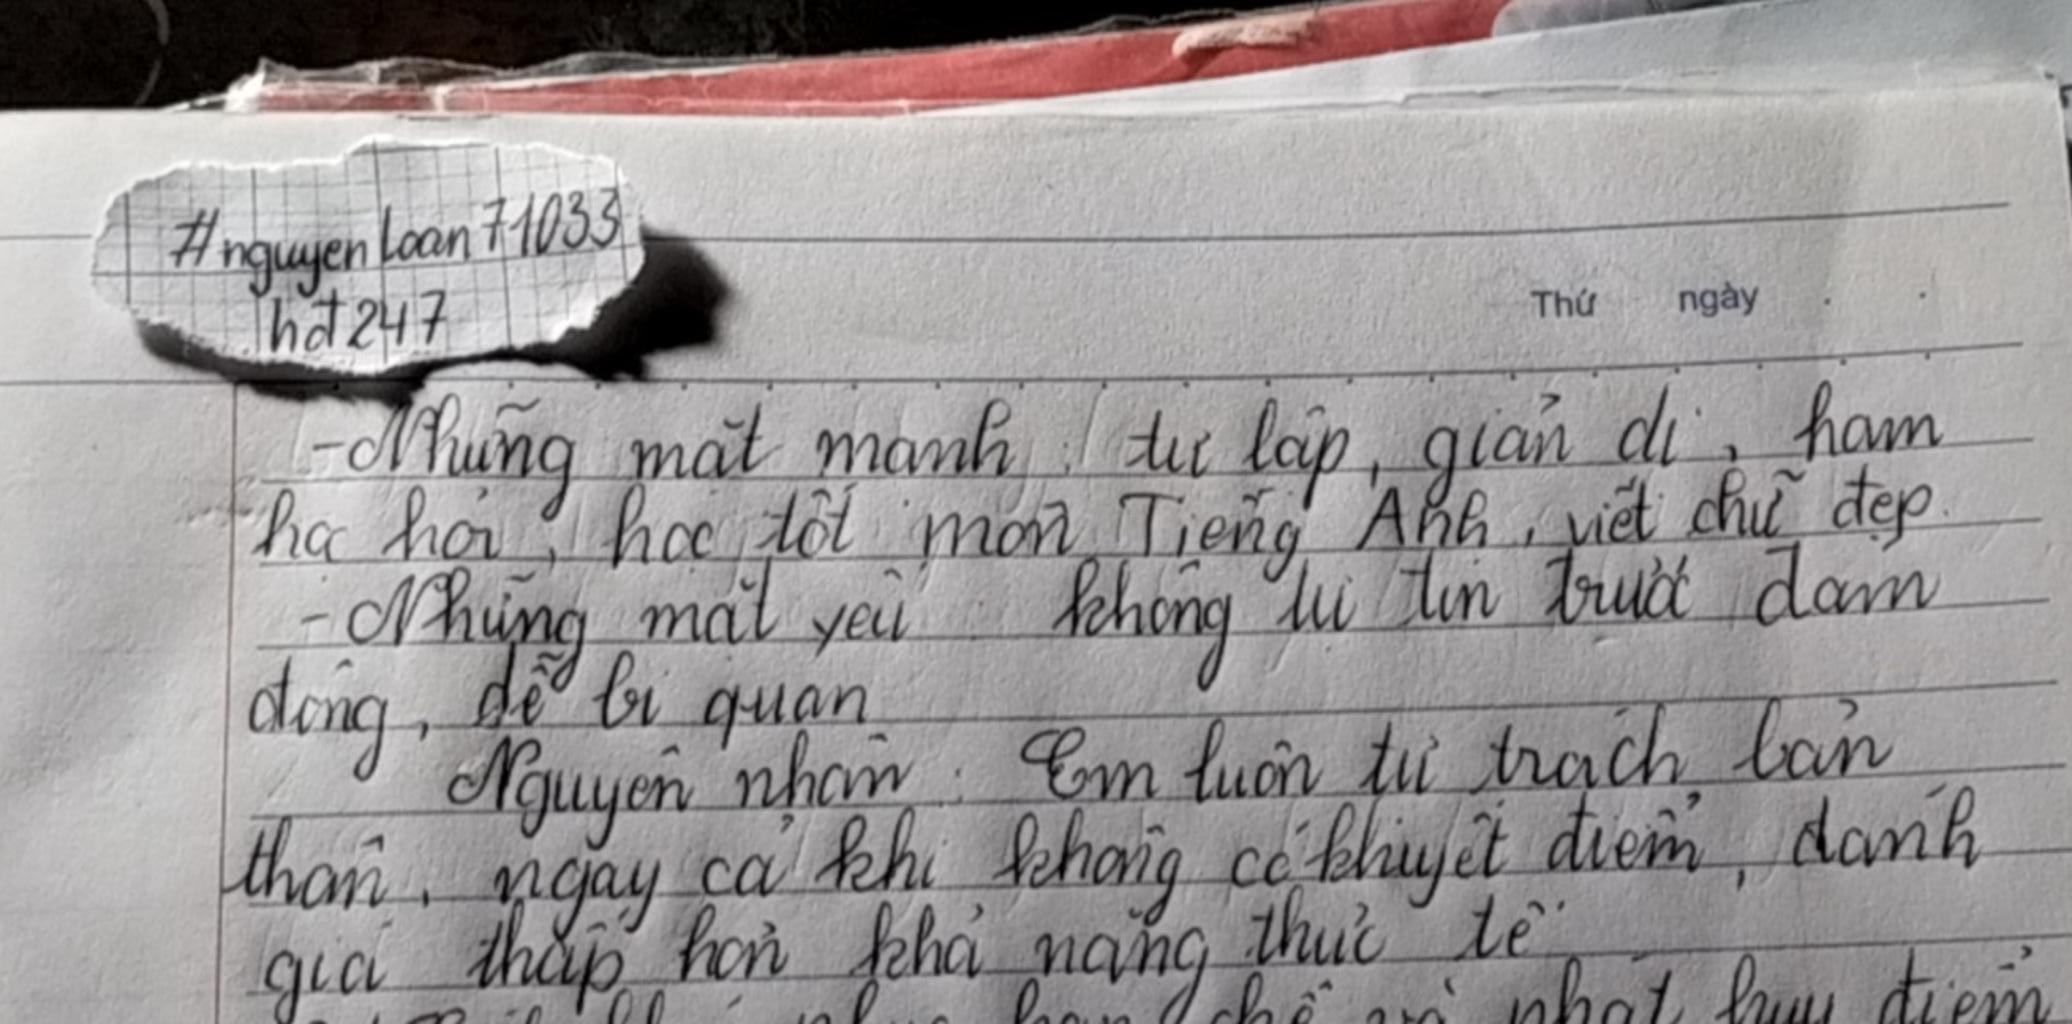 #nguyenloan71033
hđ247
Thứ ngày
- Những mặt mạnh : tự lập, giản dị, ham
học hỏi, học tốt môn Tiếng Anh, viết chữ đẹp.
- Những mặt yếu : không tự tin trước đám
đông, dễ bi quan
Nguyên nhân : Em luôn tự trách bản
thân, ngay cả khi không có khuyết điểm, đánh
giá thấp hơn khả năng thực tế
hạn chế và phát huy điểm